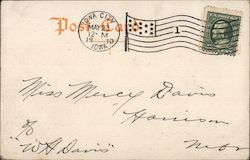 Post Card
IOWA CITY
MAY 23
12-M
1910
IOWA
1
Miss Mercy Davis
Harrison
Nebr
c/o
"W H Davis"